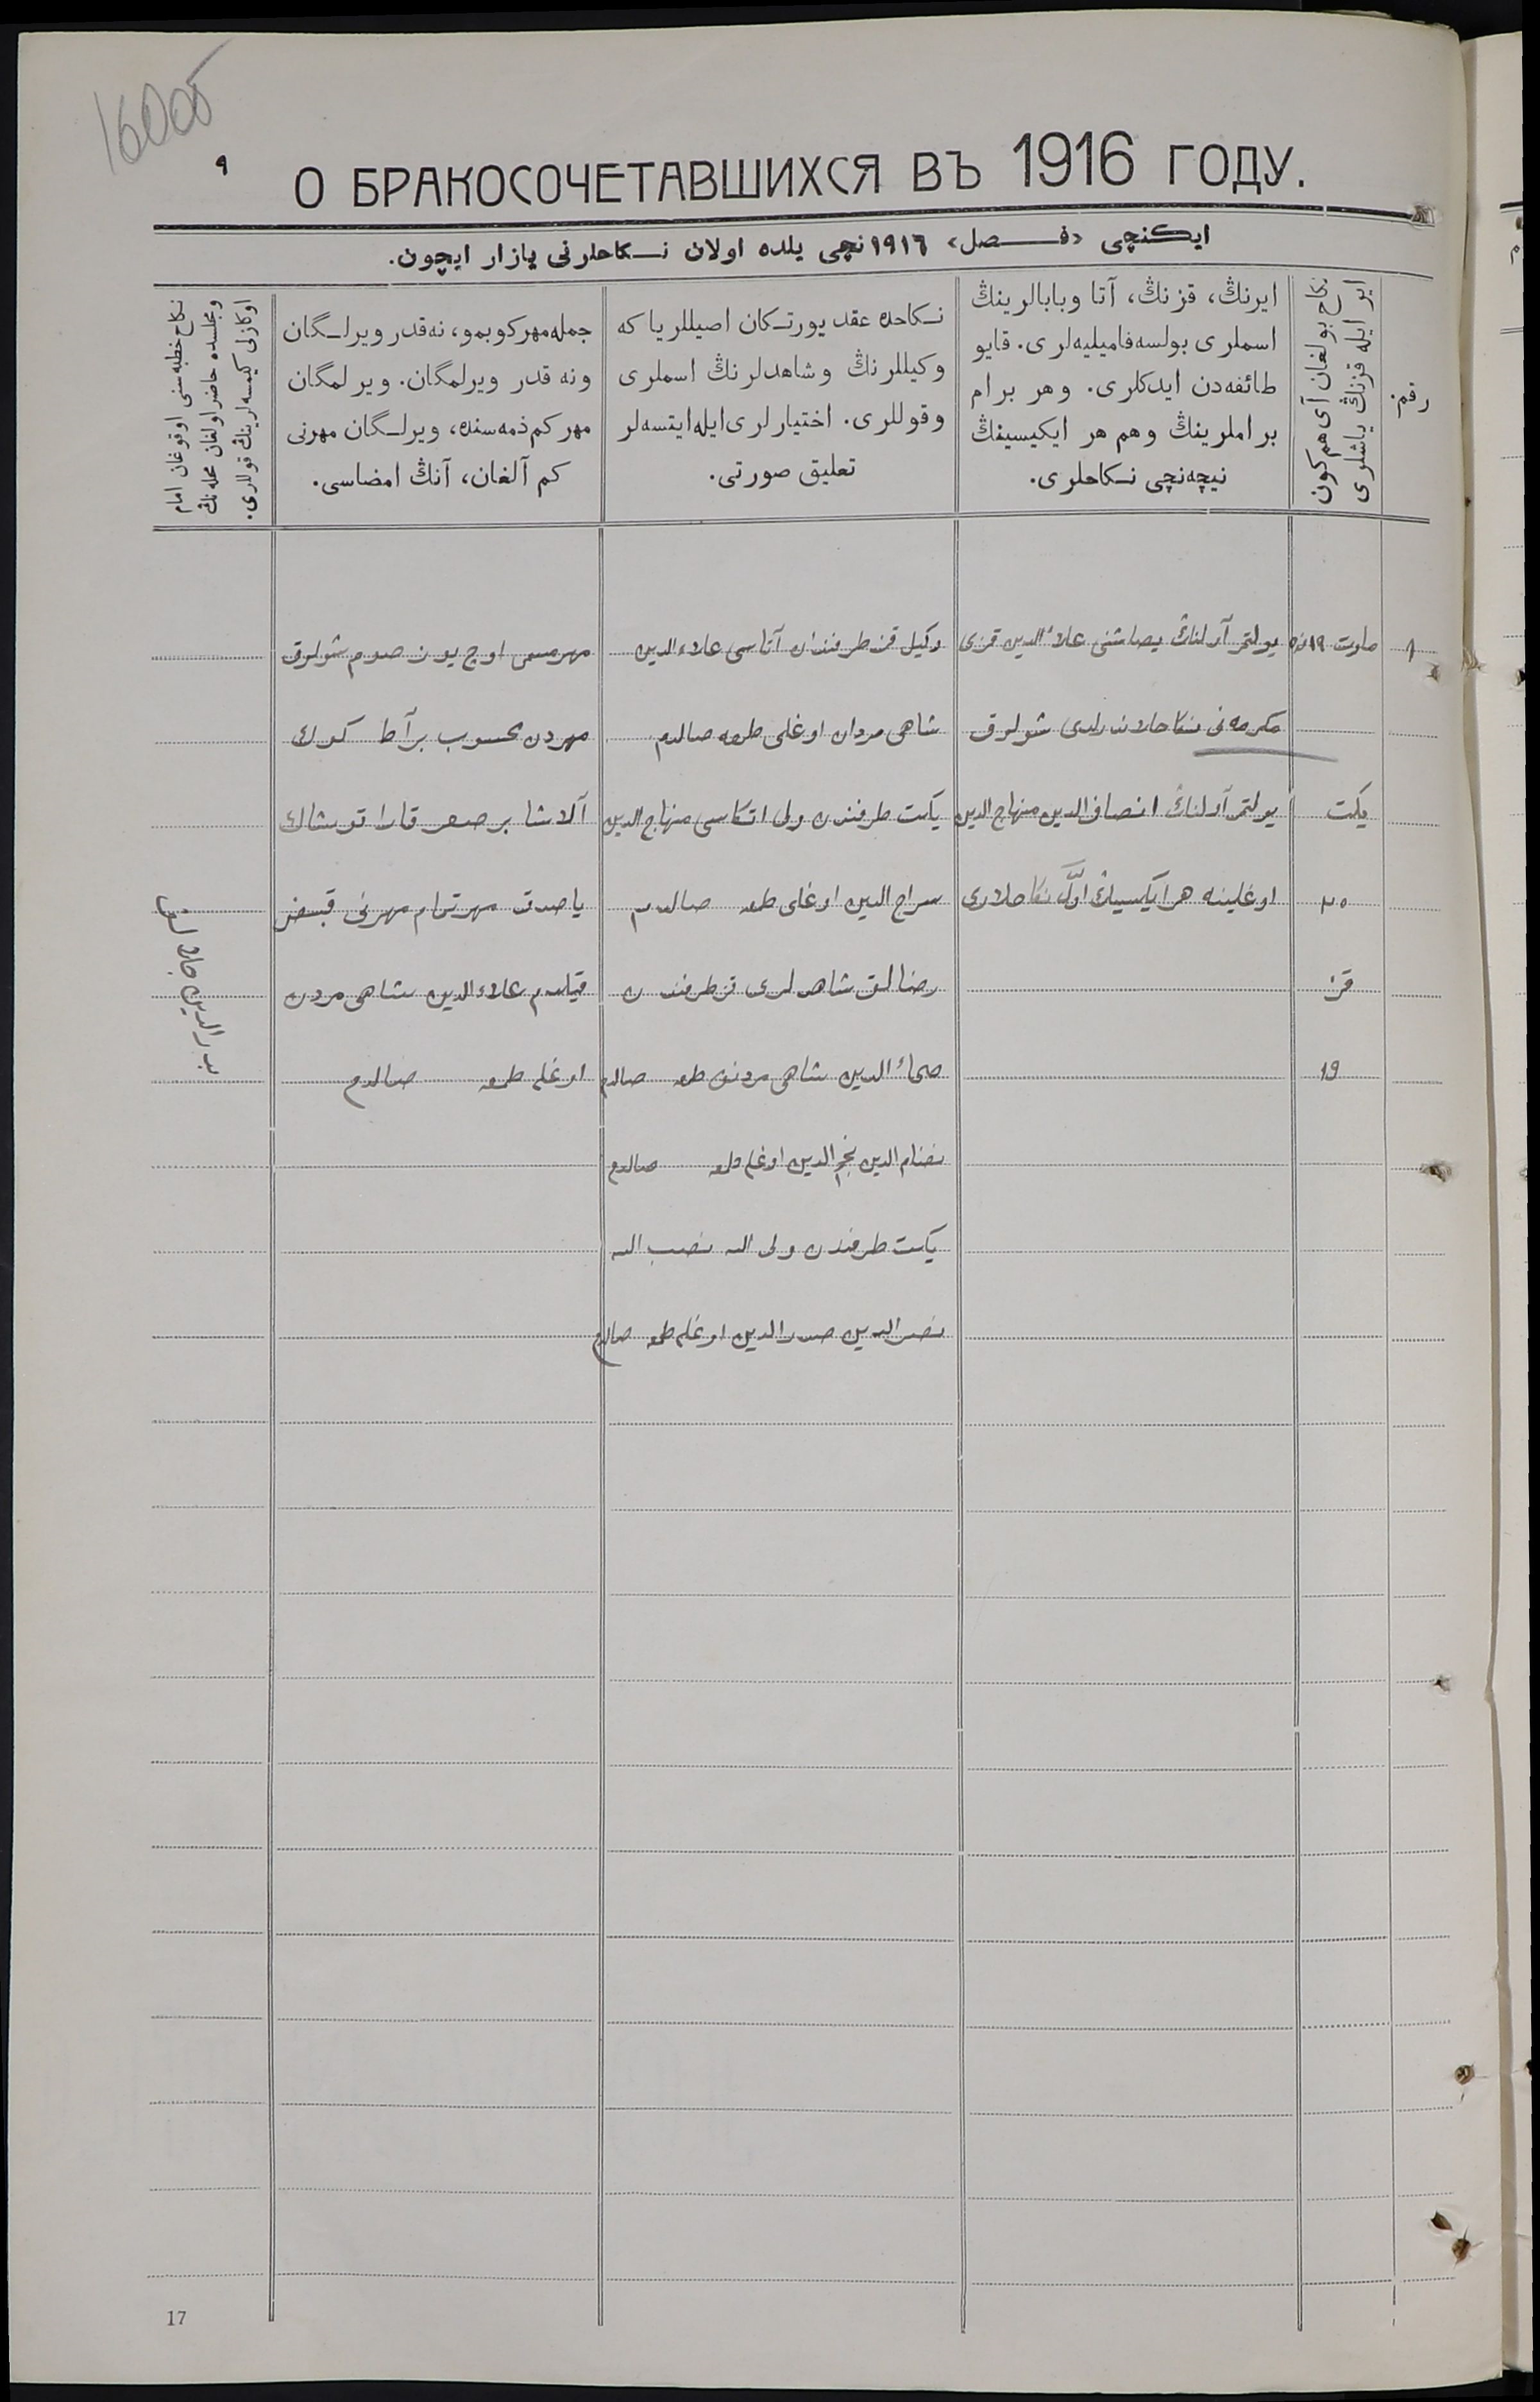 16005
۹
О БРАКОСОЧЕТАВШИХСЯ ВЪ 1916 ГОДУ.
ایكنچی «فصل» ١٩١٦نچی یلده اولان نكاحلرنی یازار ایچون.
رقم:
نكاح بولغان آی هم كون
ایر ایله قزنڭ یاشلری
ایرنڭ، قزنڭ، آتا وبابالرینڭ
اسملری بولسه فامیلیه‌لری. قایو
طائفه‌دن ایدكلری. وهر برام
براملرینڭ وهم هر ایكیسینڭ
نیچه‌نچی نكاحلری.
نكاحده عقد یورتكان اصیللر یا كه
وكیللرنڭ وشاهدلرنڭ اسملری
وقوللری. اختیارلری ایله ایتسه‌لر
تعلیق صورتی.
جمله مهر كوبمو، نه‌قدر ویرلگان
ونه قدر ویرلمگان. ویرلمگان
مهر كم ذمه‌سنده، ویرلگان مهرنی
كم آلغان، آنڭ امضاسی.
نكاح خطبه‌سنی اوقوغان امام
ومجلسده حاضر اولغان محله‌نڭ
اوكازلی كیمسه‌لرینڭ قوللری.
١
مارت ١٩
یكت
٢٠
قز
19
علاءالدین قزی
مكرمه‌نی نكاحلاندرلدی شولوق
انصاف الدین منهاج الدین
اوغلینه هر ایكیسینڭ اوّل نكاحلاری
وكیل قز طرفندان آتاسی علاءالدین
شاهی مردان اوغلی طمعه صالدم
یكت طرفندن ولی اتكاسی منهاج الدین
سراج الدین اوغلی طمعه صالدم
رضالق شاهدلری قز طرفندن
الدین شاهی مردنوف طمعه صالدم
الدین نجم الدین اوغلی طمعه صالدم
یكت طرفندن ولی الله
نصرالدین صدرالدین اوغلی طمعه صالدم
مهر مسمی اوچ یوز صوم شولوق
مهردن محسوب بر آط كوك
آلاشا بر قارا
مهر تمام مهرنی قبض
قیلدم علاءالدین شاهی مردن
اوغلی طمعه صالدم
17